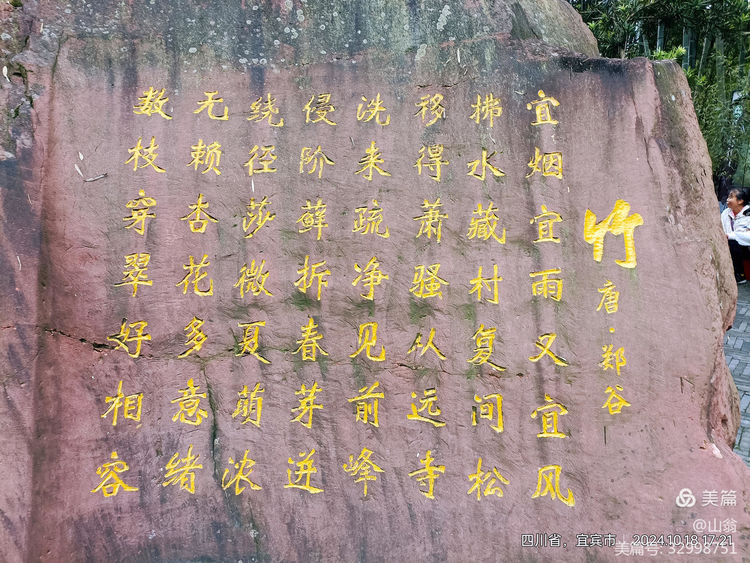 竹
唐·郑谷
宜烟宜雨又宜风
拂水藏村复间松
移得萧骚从远寺
洗来疏净见前峰
侵阶藓拆春芽迸
绕径莎微夏荫浓
无赖杏花多意绪
数枝穿翠好相容
美篇
@山翁
四川省，宜宾市 2024.10.18 17:21
美篇号: 32998751